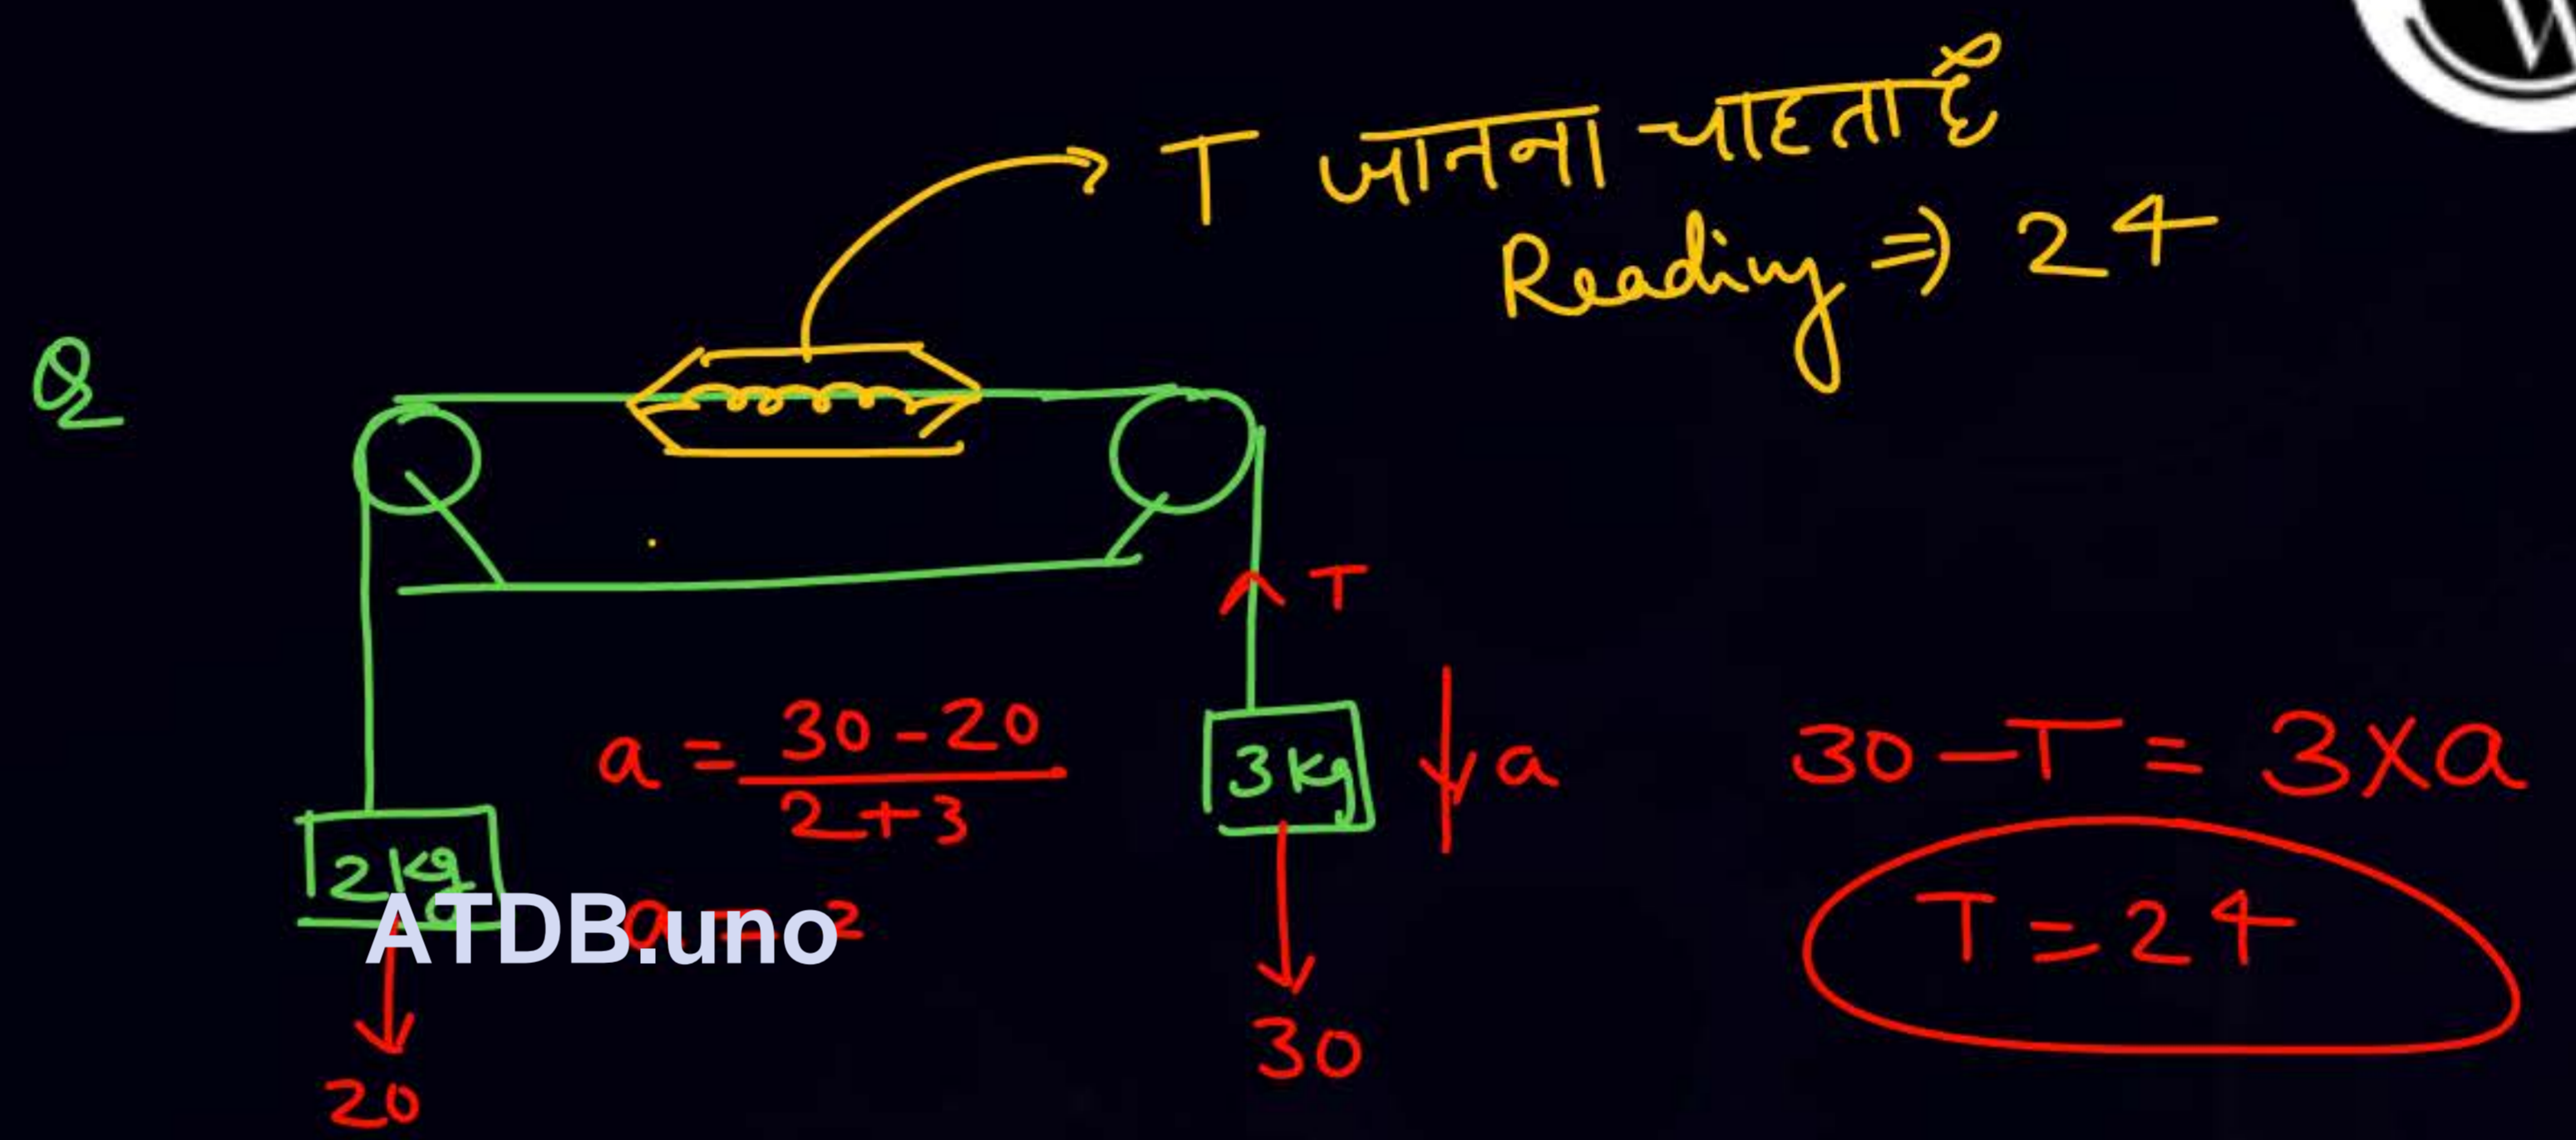 T जानना चाहता है
Reading ⇒ 24
Q
T
a = 30 - 20 / 2 + 3
3 kg
a
30 - T = 3 X a
2 kg
a = 2
ATDB.uno
T = 24
30
20